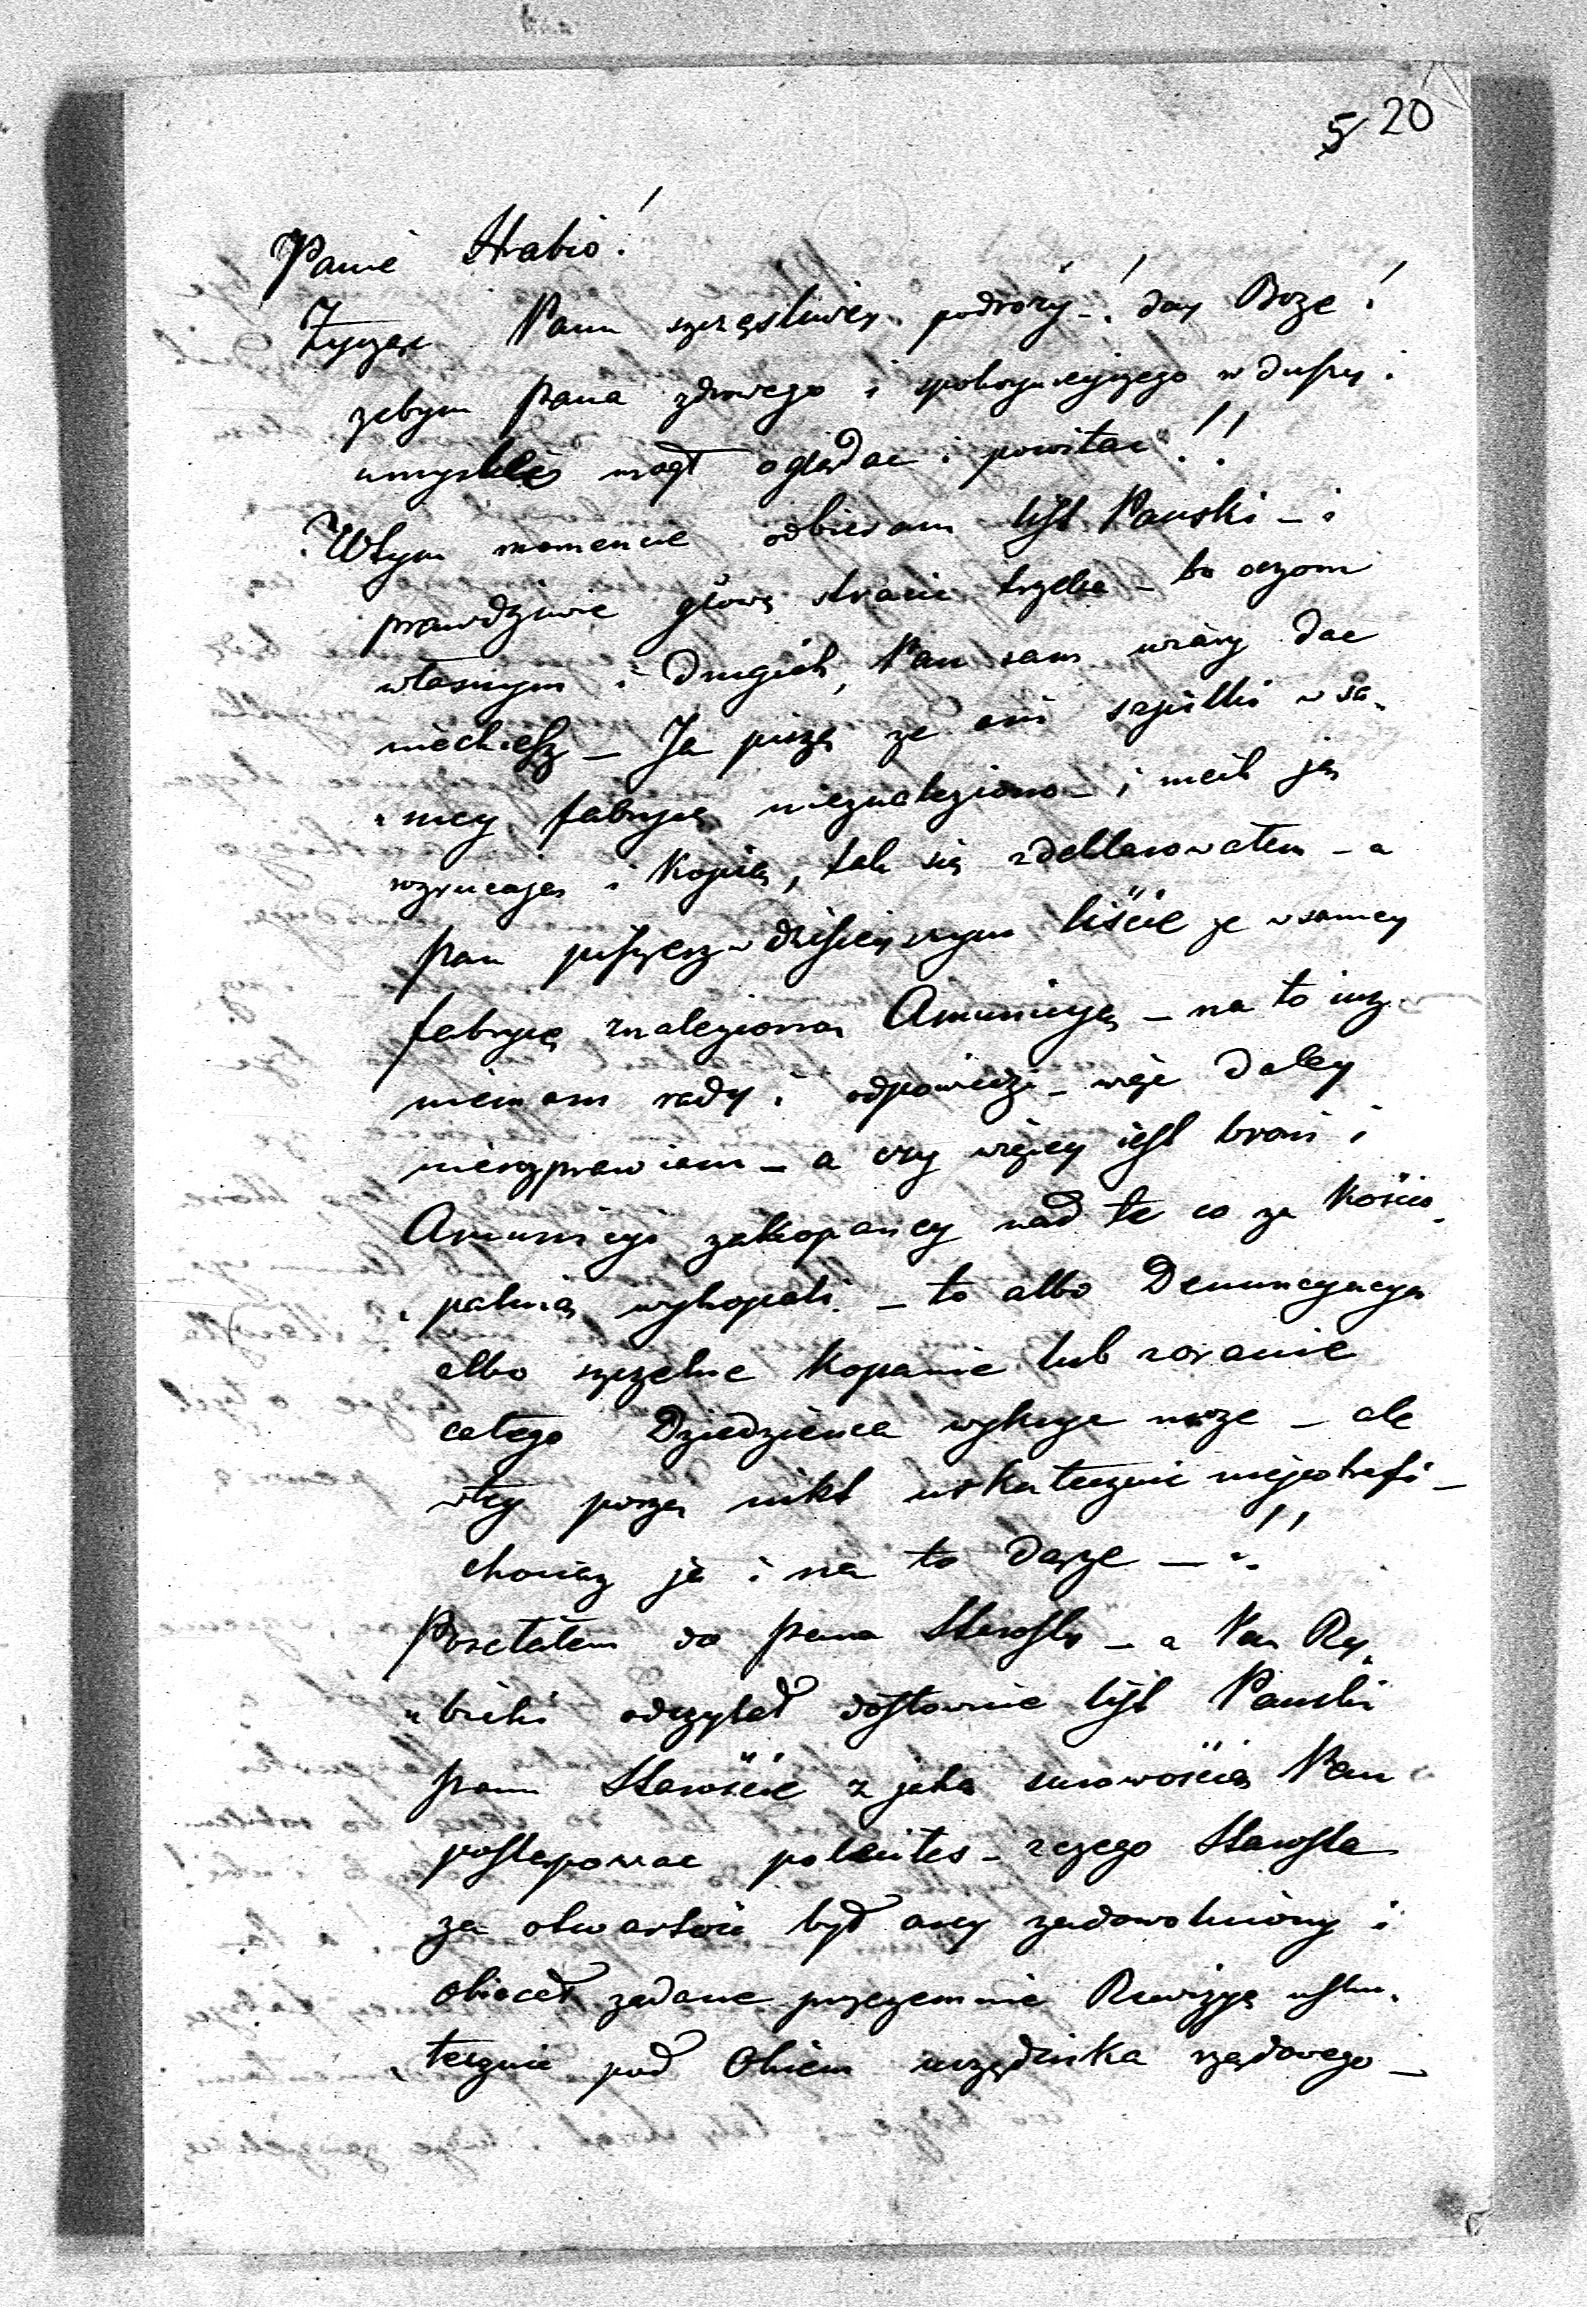 5 20
Panie Hrabio!
Zycząc Panu szczęsliwey podrózy -! day Boze!
zebym Pana zdrowego i spokoynieyszego w duszy i
umysle mogł oglądac i powitac!!
Wtym momencie odbieram list Panski - i
prawdziwie głowę stracic trzeba - bo oczom
własnym i drugich, Pan sam wiary dac
niechcesz - Ja piszę ze ani szpilki w sa„
„mey fabryce nieznaleziono - i niech ją
rozrucają i kopią, tak się zdeklarowałem - a
Pan piszesz w dzisieyszym liście ze w samey
fabryce znaleziona Amunicya - na to iuz
niemam rady i odpowiedzi - więc daley
nierozprawiam - a czy więcey iest broni i
Amunicyi zakopaney nad te co za Kościo„
„palnią wykopali - to albo Denuncyacya
albo szczelne kopanie lub zoranie
całego Dziedzienca wykryc moze - ale
wtey porze nikt uskutecznic niepotrafi -
chociaz ja i na to dązę - !!
Posłałem do Pana Starosty - a Pan Ry„
„bicki odczytał dosłownie list Panski
Panu Starościе z jaką surowością Pan
postępowac poleciłes - z czego Starosta
za otwartosc był  zadowolniony i
obiecałządane przezemnie Rewizyę usku„
„tecznic pod Okiem urzędnika rządowego -